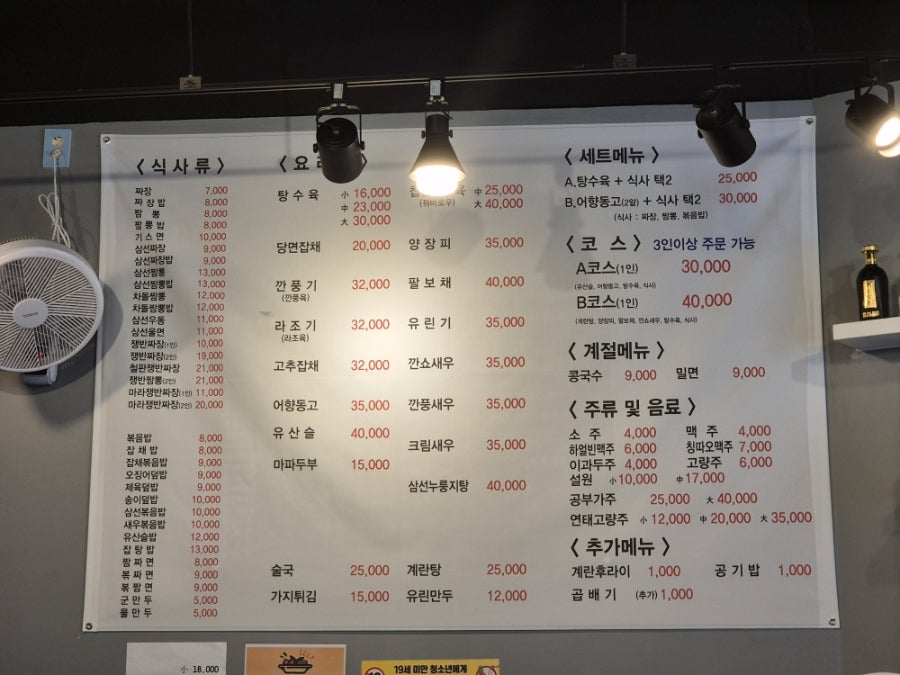 < 식사류 >
짜장 7,000
짜장밥 8,000
짬뽕 8,000
짬뽕밥 8,000
기스면 10,000
삼선짜장 9,000
삼선짜장밥 9,000
삼선짬뽕 13,000
삼선짬뽕밥 13,000
차돌짬뽕 12,000
차돌짬뽕밥 12,000
삼선우동 11,000
삼선울면 11,000
쟁반짜장(1인) 10,000
쟁반짜장(2인) 19,000
철판쟁반짜장 21,000
쟁반짬뽕(2인) 21,000
마라쟁반짜장(1인) 11,000
마라쟁반짜장(2인) 20,000
볶음밥 8,000
잡채밥 8,000
잡채볶음밥 9,000
오징어덮밥 9,000
제육덮밥 9,000
송이덮밥 10,000
삼선볶음밥 10,000
새우볶음밥 10,000
유산슬밥 12,000
잡탕밥 13,000
짬짜면 8,000
볶짜면 9,000
볶짬면 9,000
군만두 5,000
물만두 5,000
< 요
탕수육 小 16,000
中 23,000
大 30,000
당면잡채 20,000
깐풍기 32,000
(깐풍육)
라조기 32,000
(라조육)
고추잡채 32,000
어향동고 35,000
유산슬 40,000
마파두부 15,000
술국 25,000
가지튀김 15,000
中 25,000
(꿔바로우) 大 40,000
양장피 35,000
팔보채 40,000
유린기 35,000
깐쇼새우 35,000
깐풍새우 35,000
크림새우 35,000
삼선누룽지탕 40,000
계란탕 25,000
유린만두 12,000
< 세트메뉴 >
A.탕수육 + 식사 택2 25,000
B.어향동고(2알) + 식사 택2 30,000
(식사 : 짜장, 짬뽕, 볶음밥)
< 코 스 > 3인이상 주문 가능
A코스(1인) 30,000
(유산슬, 어향동고, 탕수육, 식사)
B코스(1인) 40,000
(계란탕, 양장피, 팔보채, 깐쇼새우, 탕수육, 식사)
< 계절메뉴 >
콩국수 9,000 밀면 9,000
< 주류 및 음료 >
소주 4,000 맥주 4,000
하얼빈맥주 6,000 칭따오맥주 7,000
이과두주 4,000 고량주 6,000
설원 小 10,000 中 17,000
공부가주 25,000 大 40,000
연태고량주 小 12,000 中 20,000 大 35,000
< 추가메뉴 >
계란후라이 1,000 공기밥 1,000
곱배기 (추가) 1,000
小 18,000
19세 미만 청소년에게